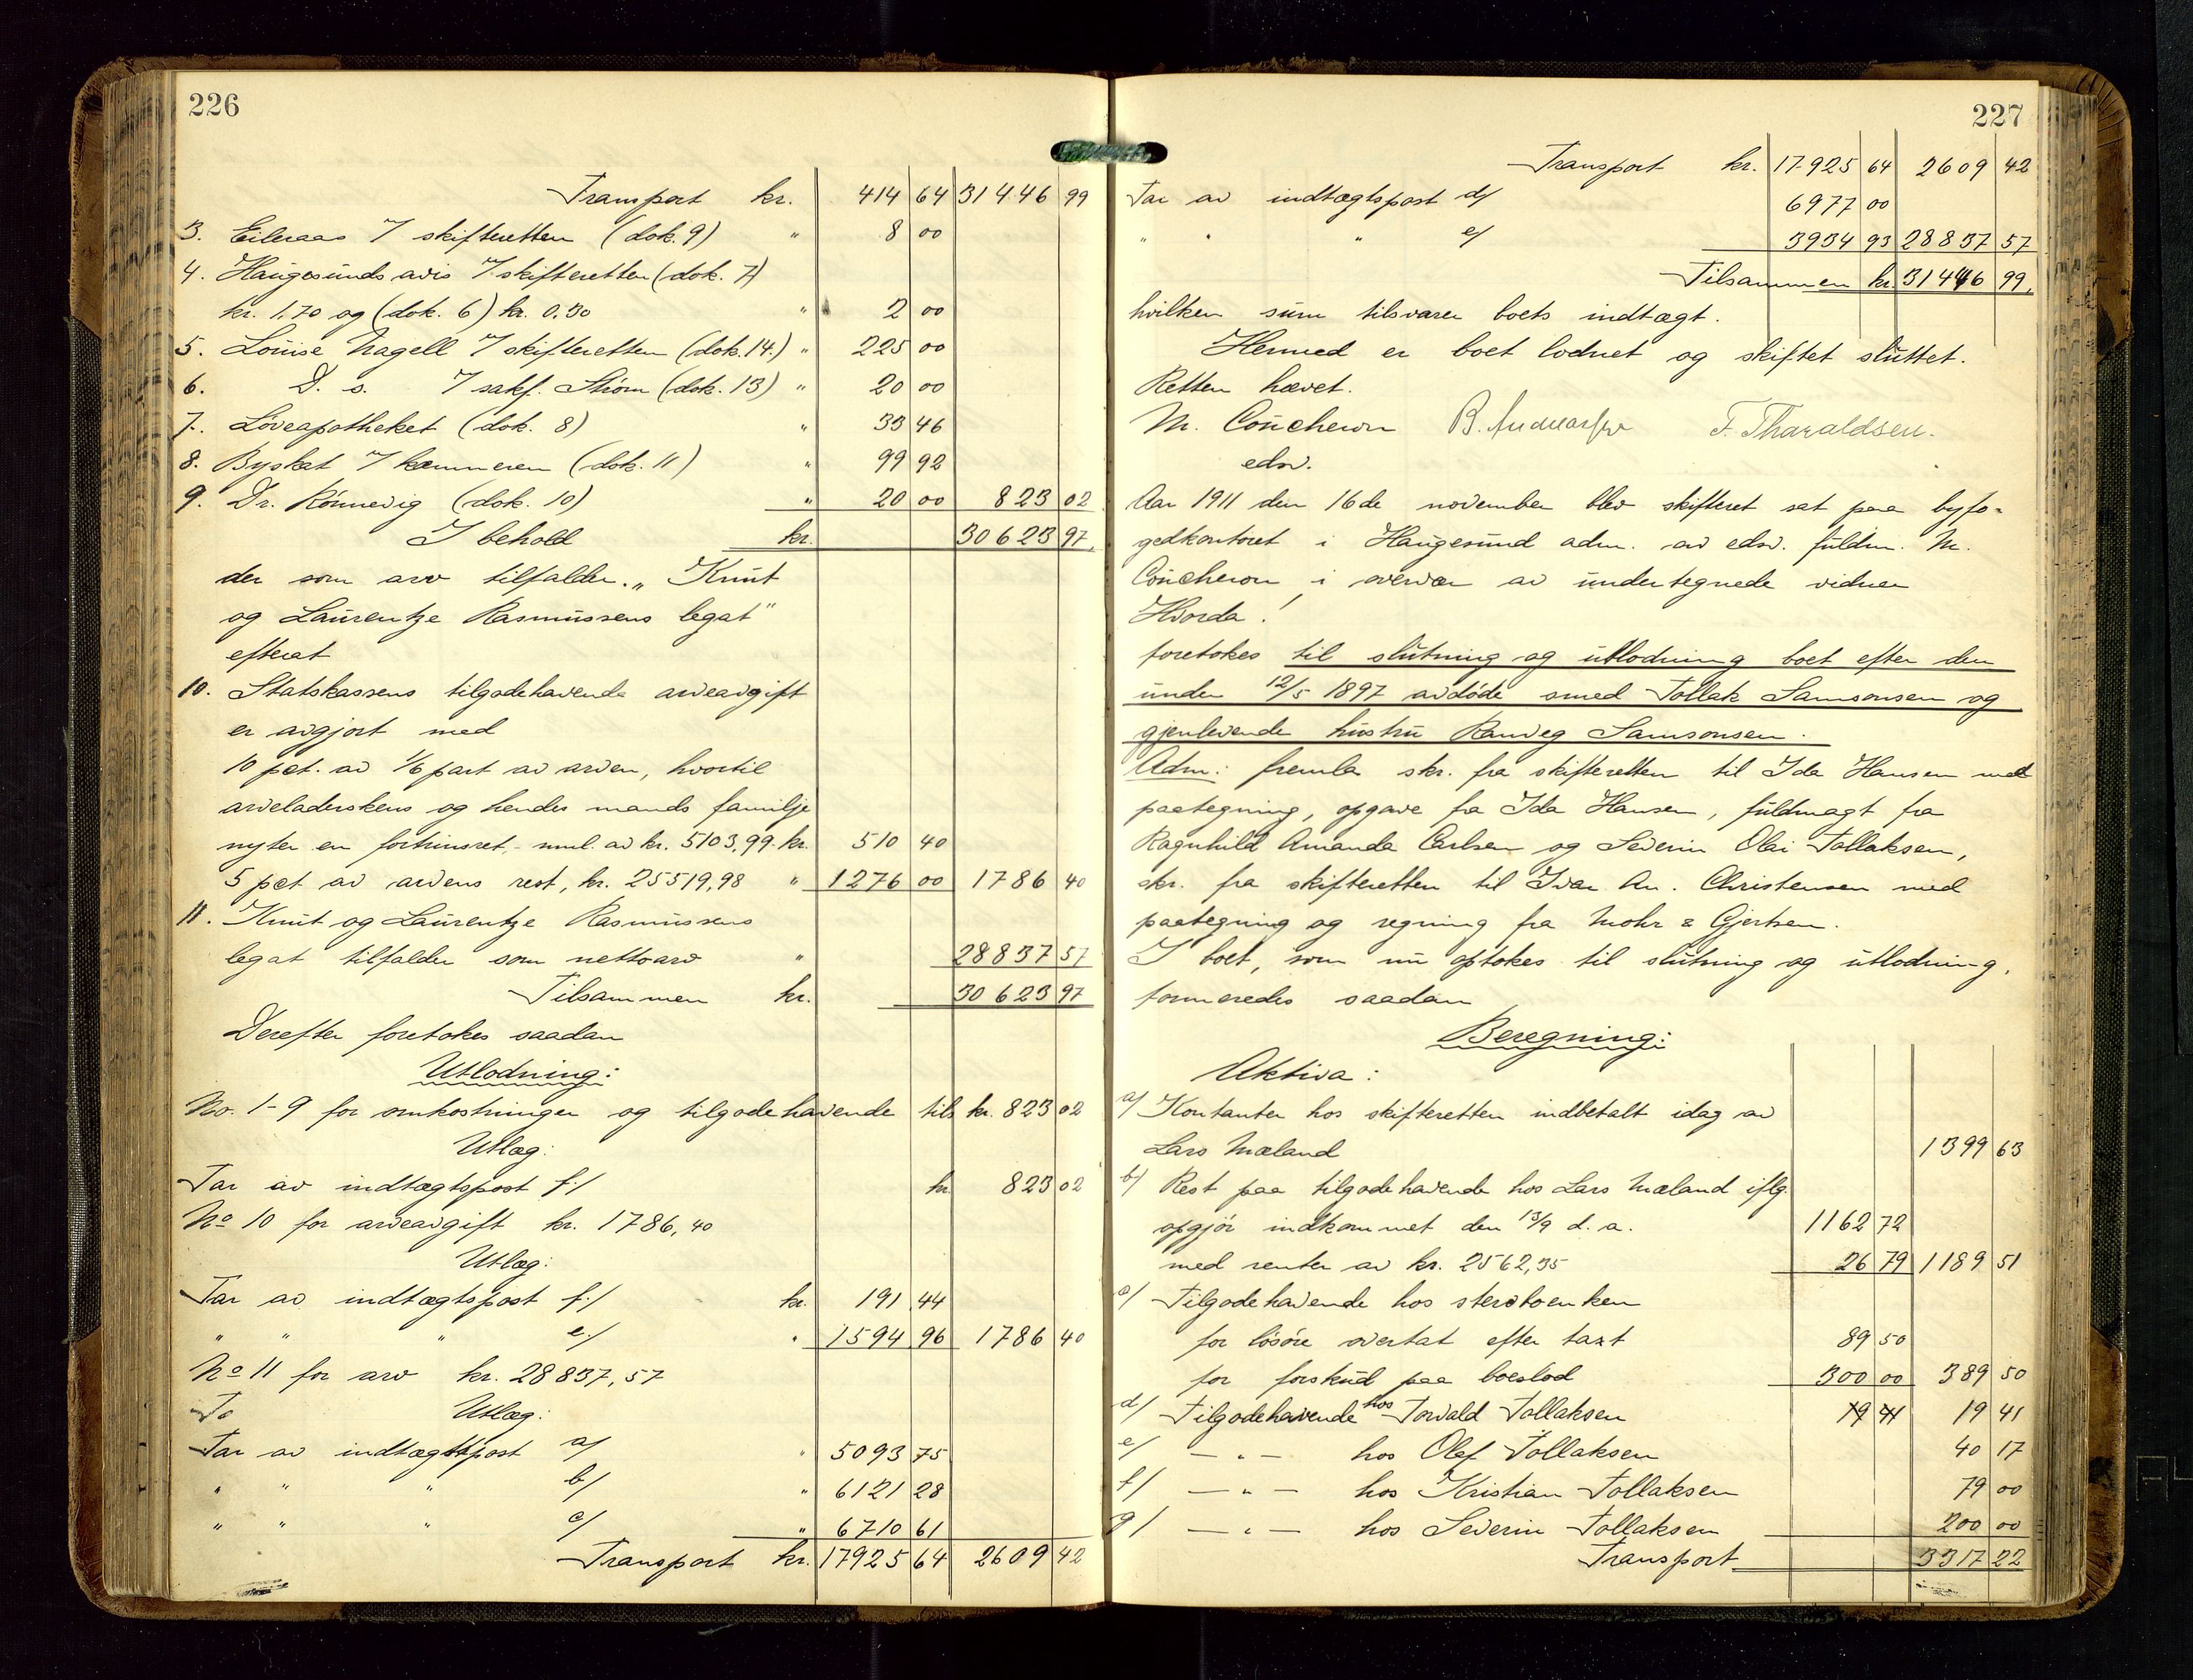 226
Transport kr. 414 64 31446 99
3. Eileraas 7 skifteretten (dok. 9) " 8 00
4. Haugesunds avis 7 skifteretten (dok. 7)
kr. 1,70 og (dok. 6) kr. 0,30 " 2 00
5. Louise Nagell 7 skifteretten (dok. 14.) " 225 00
6. D. s. 7 sakf. Strøm (dok. 13) " 20 00
7. Løveapotheket (dok. 8) " 33 46
8. Byskat 7 kæmneren (dok. 11) " 99 92
9. Dr. Rönnevig (dok. 10) " 20 00 823 02
I behold kr. 30623 97,
der som arv tilfalder „Knut
og Laurentze Rasmussens legat"
efterat
10. Statskassens tilgodehavende arveavgift
er avgjort med
10 pct. av 1/6 part av arven, hvortil
arveladerskens og hendes mands familje
nyter en fortrinsret, - nml. av kr. 5103,99 kr. 510 40
5 pct av arvens rest, kr. 25519,98 " 1276 00 1786 40
11. Knut og Laurentze Rasmussens
legat tilfalder som nettoarv " 28837 57
Tilsammen kr. 30623 97
Derefter foretokes saadan
Utlodning:
No. 1-9 for omkostninger og tilgodehavende tils kr. 823 02
Utlæg:
Tar av indtægtspost f./ kr. 823 02
No 10 for arveavgift kr. 1786,40
Utlæg:
Tar av indtægtspost f./ kr. 191 44
" " " e./ " 1594 96 1786 40
No 11 for arv kr. 28837,57
To Utlæg:
Tar av indtægtspost a/ " 5093 75
" " " b/ " 6121 28
" " " c/ " 6710 61
Transport kr. 17925 64 2609 42
227
Transport kr. 17925 64 2609 42
Tar av indtægtspost d/ 6977 00
" " " e/ 3934 93 28837 57
Tilsammen kr. 31446 99,
hvilken sum tilsvarer boets indtægt.
Hermed er boet lodnet og skiftet sluttet.
Retten hævet.
M. Coucheron B. F. Tharaldsen.
edsv.
Aar 1911 den 16de november blev skifteret sat paa byfo-
gedkontoret i Haugesund adm. av edsv. fuldm. M.
Coucheron i overvær av undertegnede vidner
Hvorda!
foretokes til slutning og utlodning boet efter den
under 12/5 1897 avdøde smed Tollak Samsonsen og
gjenlevende hustru Ranveg Samsonsen.
Adm: fremla skr. fra skifteretten til Ida Hansen med
paategning, opgave fra Ida Hansen, fuldmagt fra
Ragnhild Amanda Carlsen og Severin Olai Tollaksen,
skr. fra skifteretten til Ivar An. Christensen med
paategning og regning fra Mohr & Gjertsen.
I boet, som nu optokes til slutning og utlodning,
formeredes saadan
Beregning:
Aktiva:
a/ Kontanter hos skifteretten indbetalt idag av
Lars Mæland 1399 63
b/ Rest paa tilgodehavende hos Lars Mæland iflg.
opgjör indkommet den 13/9 d. a. 1162 72
med renter av kr. 2562,35 26 79 1189 51
c/ Tilgodehavende hos stervboenken
for lösöre overtat efter taxt 89 50
for forskud paa boeslod 300 00 389 50
d/ Tilgodehavende hos Torvald Tollaksen 19 41 19 41
e/ — " — hos Olef Tollaksen 40 17
f/ — " — hos Kristian Tollaksen 79 00
g/ — " — hos Severin Tollaksen 200 00
Transport 3317 22